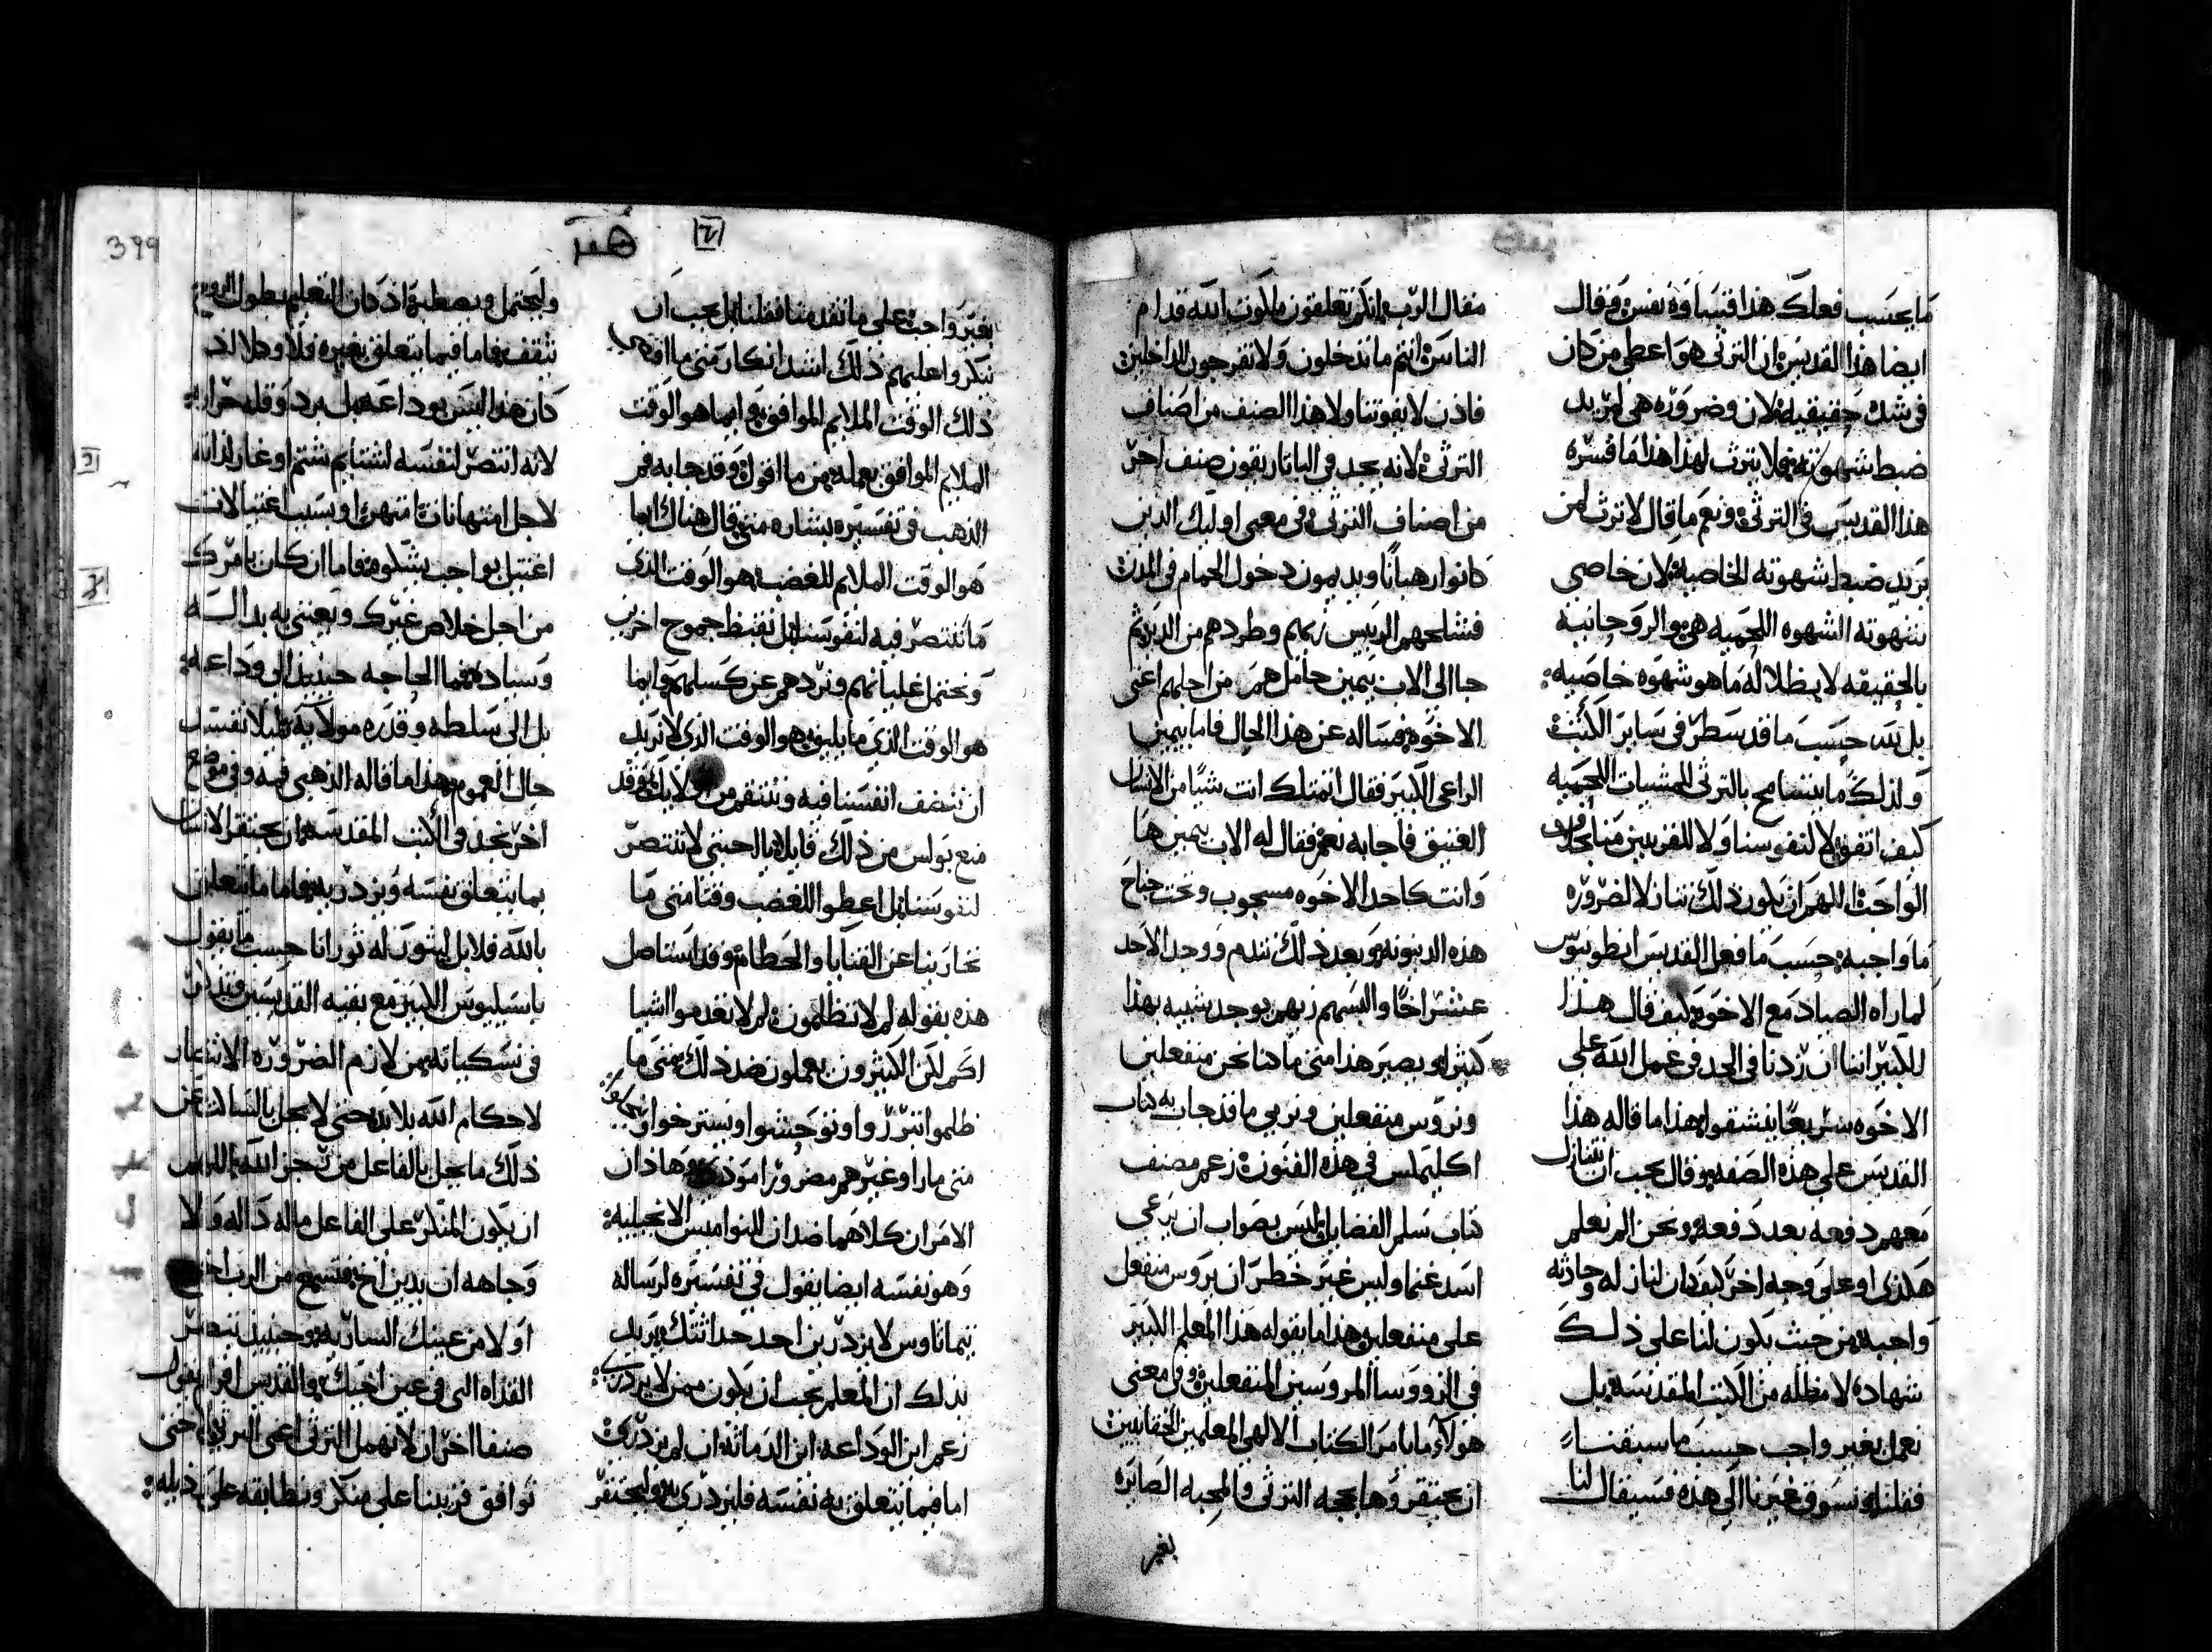 ما يحسب فعلك هذا قساوه نفس وقال
ايضا هذا القديس ان الترثي هو اعطي من كان
في شده حقيقيه لان وضروره هي لمن يريد
ضبط شهوته فلا يترث لهذا هذا ما فسره
هذا القديس في الترثي ونعم ما قال لا ترث لمن
يريد ضبط شهوته الخاصيه لان خاصي
شهوته الشهوه اللحميه هي والروحانيه
بالحقيقه لا يظلا له ما هو شهوه خاصيه
بل لله حسب ما قد سطر في ساير الكتب
ولذلك ما يتسامح بالترثي للمشيات اللحميه
كيف اتفق لا لنفوسنا ولا للقريبين منا
الواحد اللهم ان يكون ذلك تنازلا لضروره
ما واجبه حسب ما فعل القديس انطونيوس
لما راه الصياد مع الاخوه كيف قال هذا
للكبير اننا ان زدنا في الحد في عمل الله على
الاخوه سريعا ينشقوا هذا ما قاله هذا
القديس على هذه الصفه وقال يجب ان نتنازل
معهم دفعه بعد دفعه ونحن الم نعلم
هكذي او على وجه اخر كيف كان لنا زله وحادثه
واجبه من حيث يكون لنا على ذلك
شهاده لا مظله من الكتب المقدسه بل
نعمل بغير واجب حسب ما سبقنا
فقلنا ونسوق غيرنا الى هذه فسيقال لنا
منقال الرب انكم تغلقون ملكوت الله قدام
الناس انتم ما تدخلون ولا تفرجون للداخلين
فاذن لا يفوتنا ولا هذا الصنف من اصناف
الترثي لانه يجد في الباتاريقون صنف اخر
من اصناف الترثي في معنى اوليك الدين
كانوا رهبانا ويديمون دخول الحمام في المدن
فشلحهم الرييس زيهم وطردهم من الدير ثم
جا الى الاب بيمين حامل همر من اجلهم اعني
الاخوه فساله عن هذا الحال فاما بيمين
الراعي الكبير فقال اتمتلك انت شيا من الانسان
العتيق فاجابه نعم فقال له الاب بيمين ها
وانت كاحد الاخوه مسحوب وتحت جناح
هذه الدينونه وبعد ذلك تندم ووجد الاحد
عشر اخا والبسهم زيهم يوجد شبيه بهذا
كثيرا ويصير هذا متى ما كنا نحن منفعلين
ونروس منفعلين ونربي ما قد جا به كتاب
اكليمكس في هذه الفنون زعم مصنف
كتاب سلم الفضايل وليس بصواب ان يرعي
اسد غنما وليس غير خطر ان يروس منفعل
على منفعلين هذا ما يقوله هذا المعلم الكبير
في الرووسا المروسين المنفعلين وفي معنى
هولاء ما يامر الكتاب الالهي المعلمين الحقانيين
ان يحتقروها بحجه الترثي والمحبه الصايره
بغير
399
بغير واجب على ما تقدمنا فقلنا بل يجب ان
ننكر واعليهم ذلك اشد انكار متى ما اقتضى
ذلك الوقت الملايم الموافق وايما هو الوقت
الملايم الموافق بعمله من ما اقوله وقد جا به فم
الذهب في تفسيره بشاره متى قال هناك ايما
هو الوقت الملايم للغضب هو الوقت الذي
ما ننتصر فيه لنفوسنا بل نضبط جموح اخرين
ونحتمل غليانهم ونردهم عن كسلهم وايما
هو الوقت الذي ما يليق هو الوقت الذي لا نريد
ان ننصف انفسنا فيه وننتقم من ذلك فقد
منع بولس من ذلك قايلا يا احبتي لا تنتصر
لنفوسنا بل اعطوا للغضب وقتا متى ما
تحاربنا عن القنايا والحطام وقد استاصل
هذه بقوله لم لا تظلمون لم لا تعدموا اشيا
اكم لكن الكثيرون يعملون ضد ذلك متى ما
ظلموا انترزوا وتوحشوا ويستر خوا
متى ما راوا غيرهم مضرورا وهاذان
الامران كلاهما ضدان للنواميس الانجيليه
وهو نفسه ايضا يقول في تفسيره لرساله
تيماتاوس لا يزدرين احد حداثتك يريد
بذلك ان المعلم يجب ان يكون ممن لا يزدرى به
زعم اين الوداعه اين الدماثه ان لم يزدرى
اما فيما يتعلق به نفسه فليزدرى به وليحتقر
وليحتمل ويصطبر اذ كان التعليم بطول الروح
يثقف فاما فيما يتعلق بغيره فلا وكلا لذ
كان هذا ليس بوداعه بل برد وقله حراره
لانه انتصر لنفسه لشتايم شتم او عار
لاجل امتهانات امتهن او بسبب اغتيالات
اغتيل بواجب يشكوه فاما ان كان يامرك
من اجل خلاص غيرك ويعتني به بدالسه
وسياده فما الحاجه حينيذ الى وداعه
بل الى سلطه وقدره مولايه ليلا تفسد
حال العموم هذا ما قاله الذهبي فمه وفي موضع
اخر نجد في الكتب المقدسه ان يحتقر الانسان
بما يتعلق نفسه ويزدري به فاما ما يتعلق
بالله فلا بل ليكون له ثورانا حسب ما يقول
باسيليوس الكبير مع بقيه القديسين
في نسكياته من لازم الضروره الانتهار
لاحكام الله بلا بد حتى لا يحل بالساكت عن
ذلك ما يحل بالفاعل من رجز الله اللهم
ان يكون المنكر على الفاعل ما له داله ولا
وجاهه ان يدين اخ فتسمع من الرب اخرج
اولا من عينك الساريه وحينيذ تبصر
القذاه التي في عين اخيك والقديس افرام يقول
صنفا اخر ان لا نهمل الترثي اعني الترثي حتى
نوافق قريبنا على منكر ونطابقه على رذيله